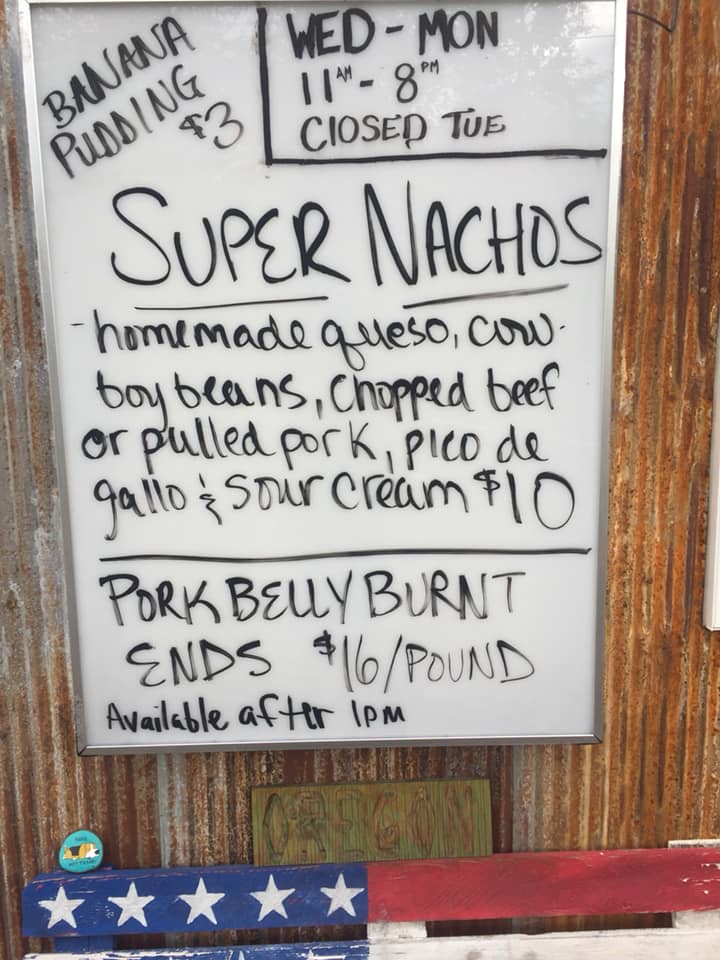 BANANA
PUDDING
$3
WED - MON
11AM - 8PM
CLOSED TUE
SUPER NACHOS
- homemade queso, cow-
boy beans, chopped beef
or pulled pork, pico de
gallo & sour cream $10
PORK BELLY BURNT
ENDS $16/POUND
Available after 1PM
OREGON